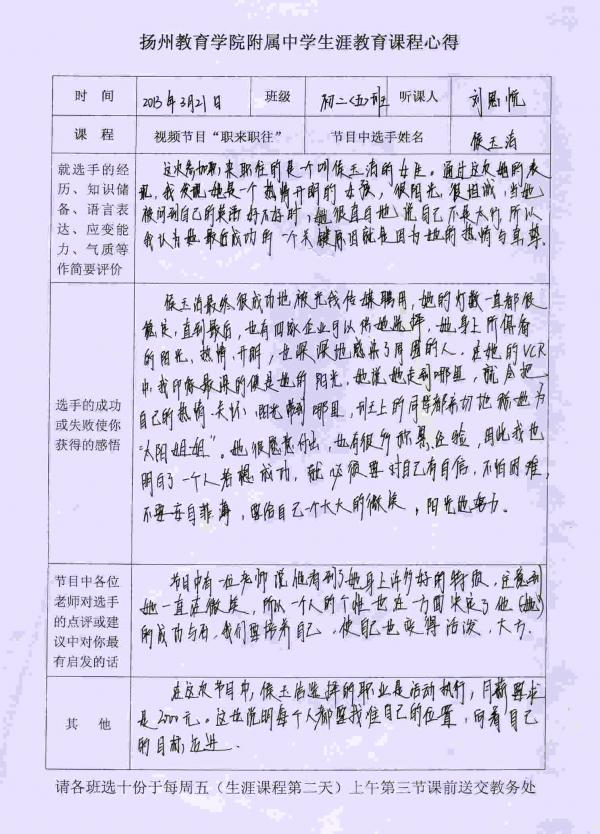 扬州教育学院附属中学生涯教育课程心得
时 间 2013年3月21日 班级 初二<五>班 听课人 刘思忱
课 程 视频节目“职来职往” 节目中选手姓名 侯玉洁
就选手的经
历、知识储
备、语言表
达、应变能
力、气质等
作简要评价
这次参加职来职往的是一个叫侯玉洁的女生。通过这次她的表
现，我发现她是一个热情开朗的女孩，很阳光，很坦诚，当她
被问到自己的英语好不好时，她很直白地说自己不是太好，所以
我认为她最后成功的一个关键原因就是因为她的热情与真挚。
选手的成功
或失败使你
获得的感悟
侯玉洁最终很成功地被光线传媒聘用，她的灯数一直都很
稳定，直到最后，也有四家企业可以供她选择，她身上所俱备
的阳光，热情，开朗，也深深地感染了周围的人。在她的VCR
中，我印象最深的便是她的阳光，她说她走到哪里，就会把
自己的热情、关怀、阳光带到哪里，社上的同学都亲切地称她为
“太阳姐姐”。她很愿意付出，也有很多积累经验，因此我也
明白了一个人若想成功，就必须要对自己有自信，不怕困难，
不要妄自菲薄，要给自己一个大大的微笑，阳光地努力。
节目中各位
老师对选手
的点评或建
议中对你最
有启发的话
节目中有一位老师说他看到了她身上许多好的特质，注意到
她一直在微笑，所以一个人的个性也在一方面决定了他（她）
的成功与否，我们要培养自己，使自己也变得活泼，大方。
其 他
在这次节目中，侯玉洁选择的职业是活动执行，月薪要求
是2000元。这也说明每个人都要找准自己的位置，向着自己
的目标前进。
请各班选十份于每周五（生涯课程第二天）上午第三节课前送交教务处